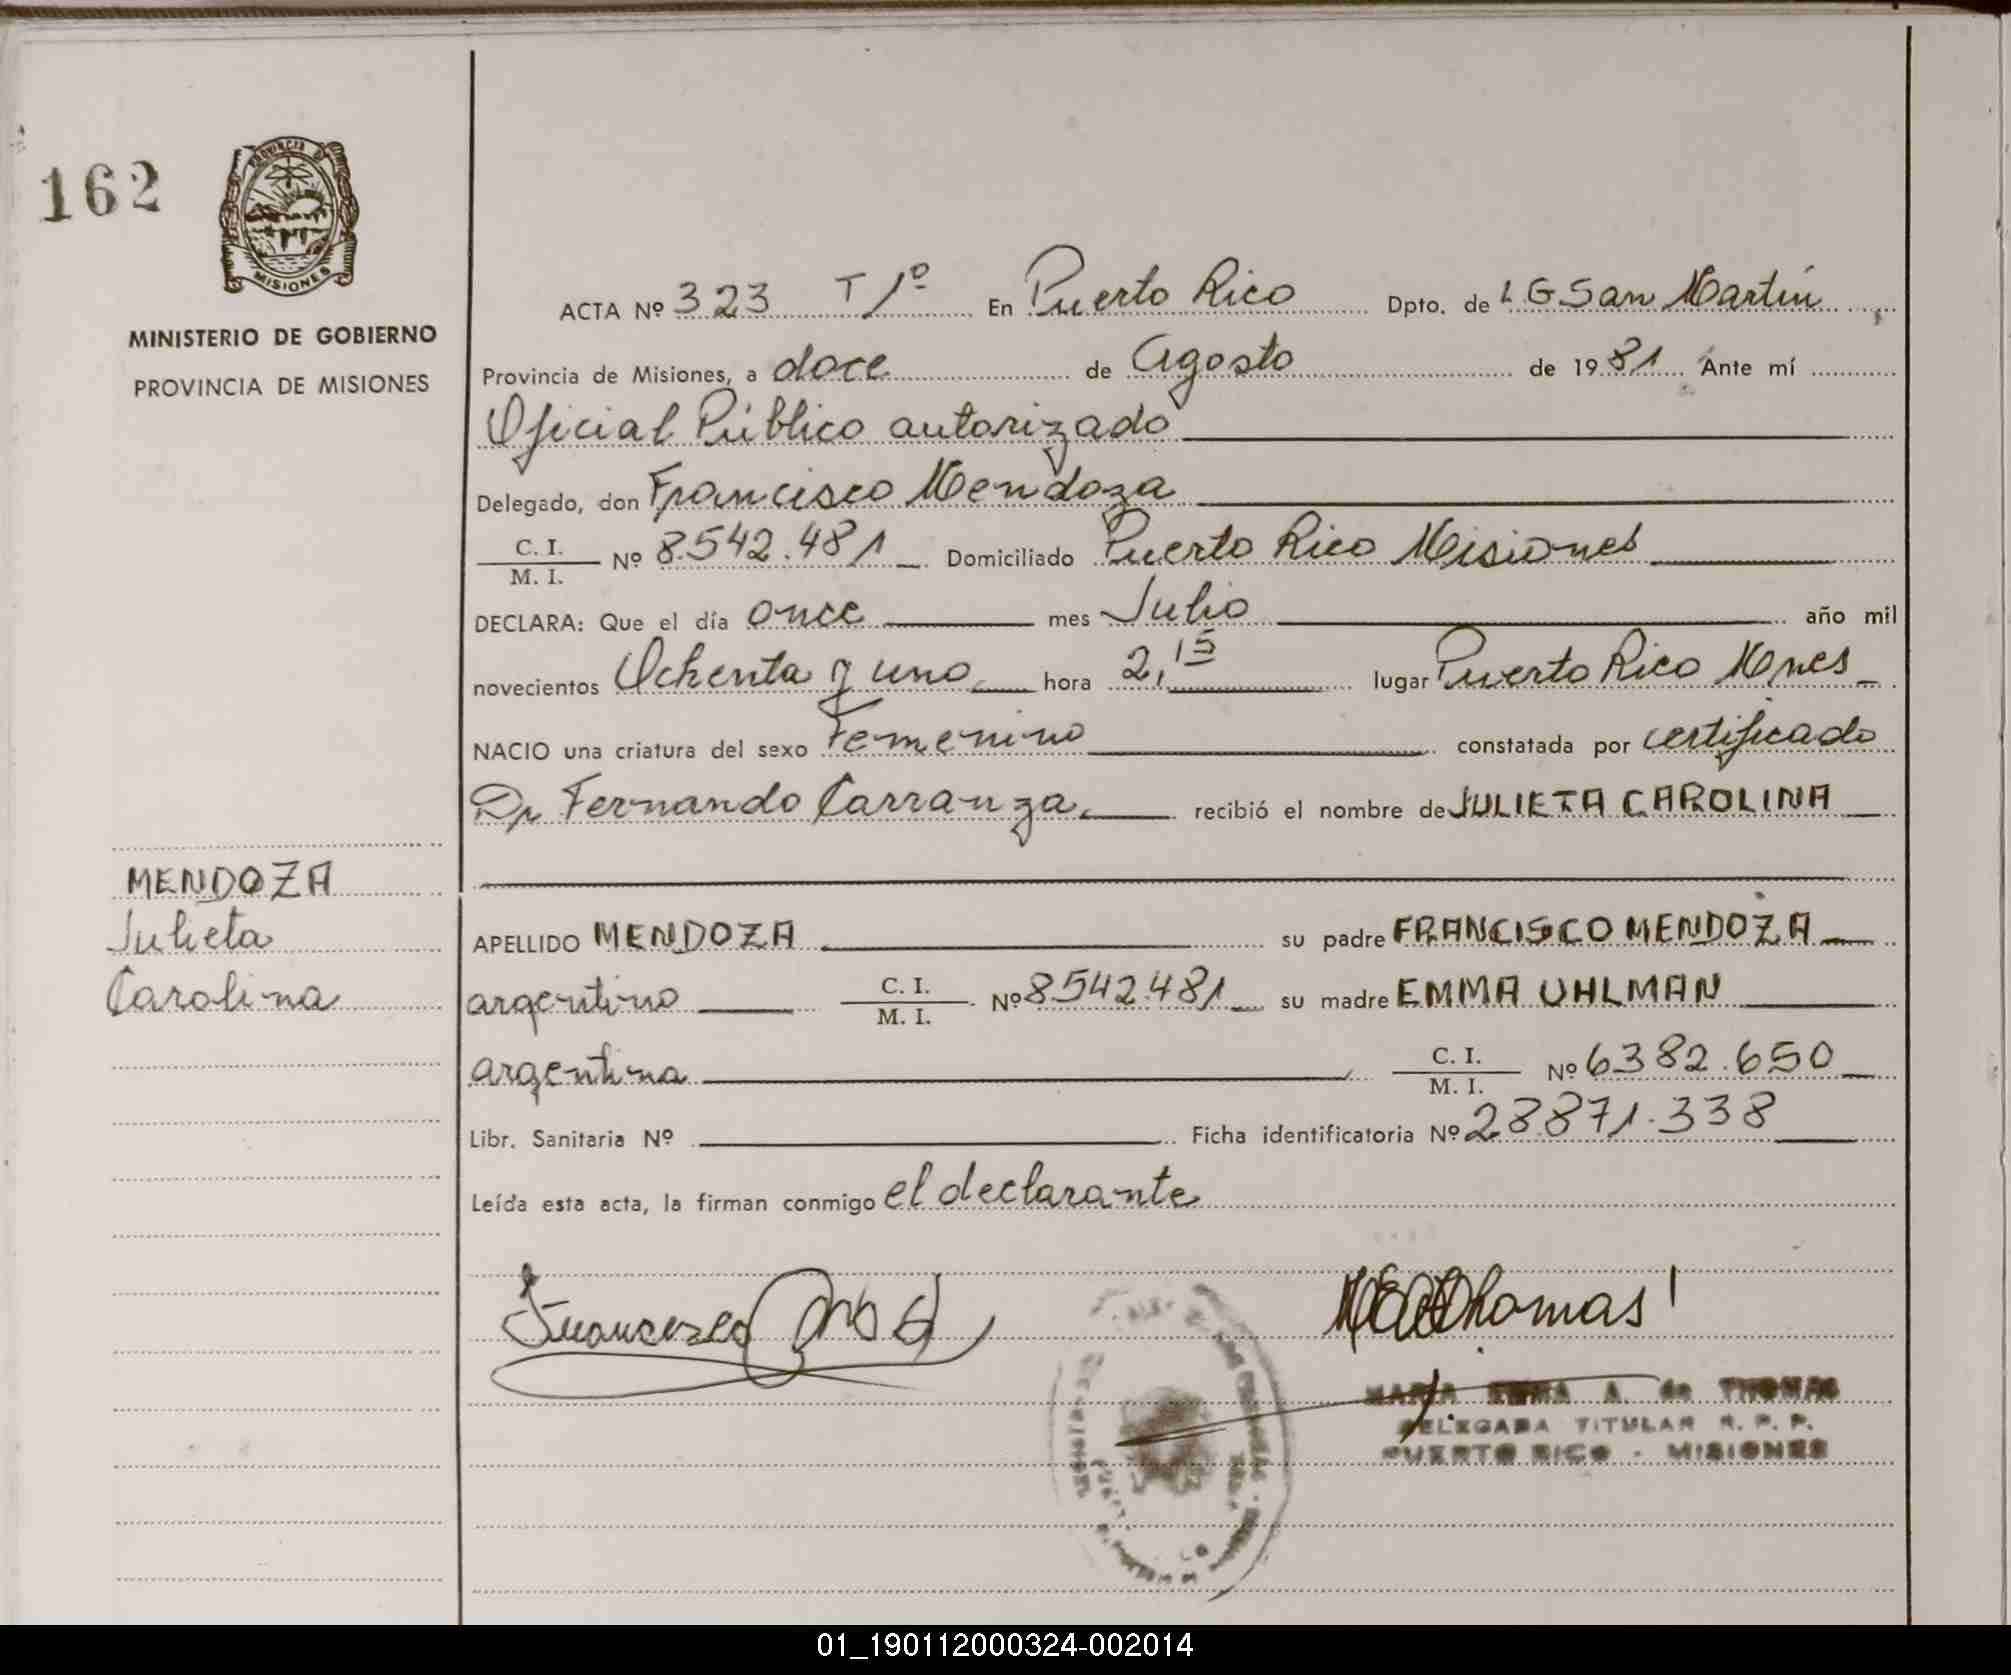 162
PROVINCIA DE
MISIONES
MINISTERIO DE GOBIERNO
PROVINCIA DE MISIONES
ACTA Nº 323 T 1º En Puerto Rico Dpto. de L G San Martín
Provincia de Misiones, a doce de Agosto de 1981 Ante mí
Oficial Público autorizado
Delegado, don Francisco Mendoza
C. I.
M. I. Nº 8.542.481 Domiciliado Puerto Rico Misiones
DECLARA: Que el día once mes Julio año mil
novecientos Ochenta y uno hora 2,15 lugar Puerto Rico Mnes
NACIO una criatura del sexo Femenino constatada por certificado
Dr Fernando Carranza recibió el nombre de JULIETA CAROLINA
MENDOZA
Julieta
Carolina
APELLIDO MENDOZA su padre FRANCISCO MENDOZA
argentino C. I.
M. I. Nº 8.542.481 su madre EMMA UHLMAN
argentina C. I.
M. I. Nº 6382.650
Libr. Sanitaria Nº Ficha identificatoria Nº 28.871.338
Leída esta acta, la firman conmigo el declarante
MARIA EMMA A. de THOMAS
DELEGADA TITULAR R. P. P.
PUERTO RICO - MISIONES
01_190112000324-002014